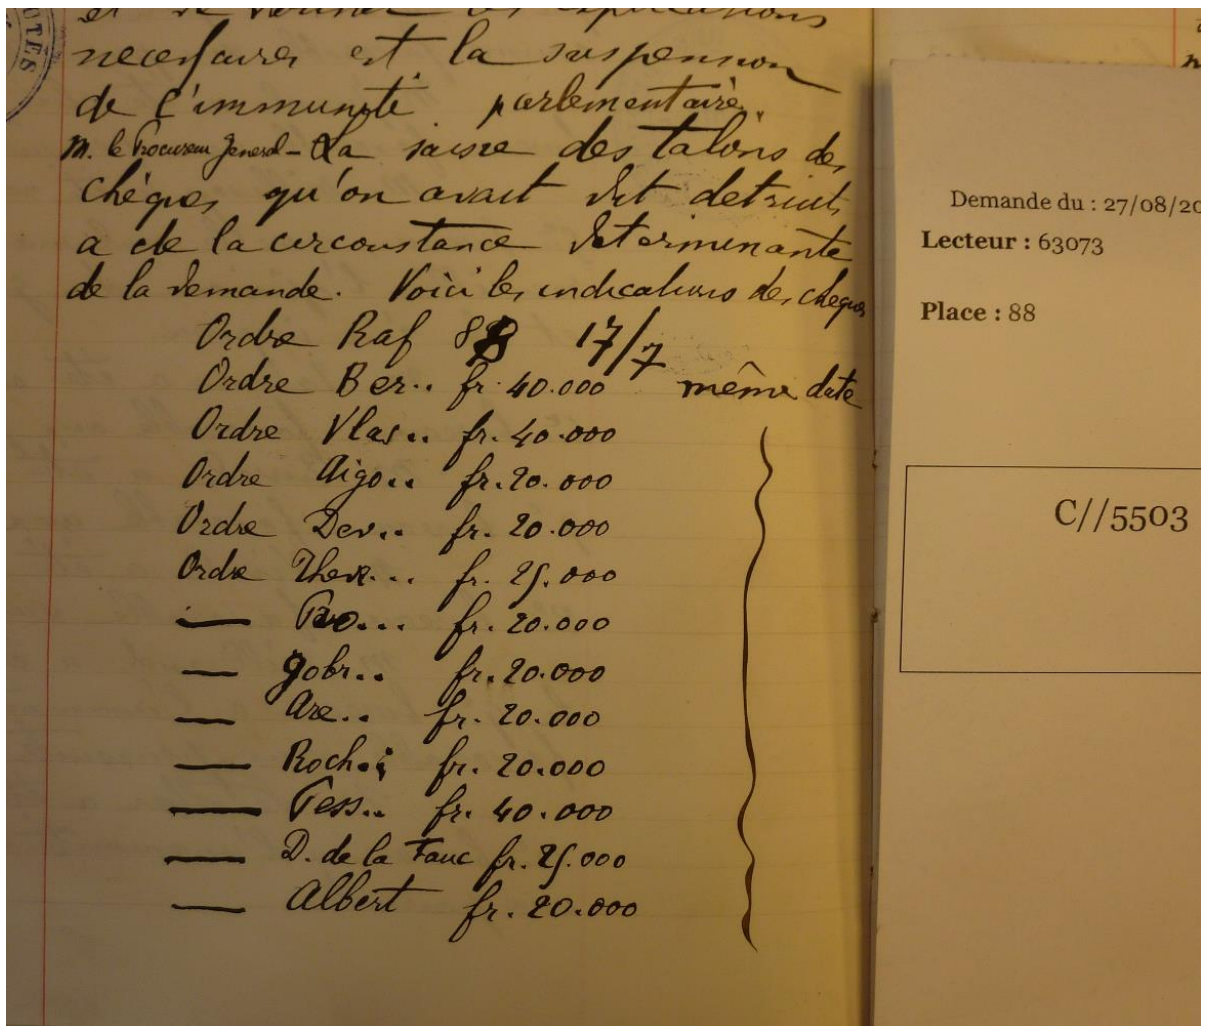 et de donner les explications
necessaires est la suspension
de l'immunité parlementaire.
M. le Procureur General - La saisie des talons de
chèques qu'on avait dit detruits
a ete la circonstance determinante
de la demande. Voici les indications des cheques
Ordre Raf 88 17/7
Ordre Ber.. fr. 40.000 même date
Ordre Vlas.. fr. 40.000
Ordre Aigo.. fr. 20.000
Ordre Dev.. fr. 20.000
Ordre Thev... fr. 25.000
— Pro... fr. 20.000
— Gobr.. fr. 20.000
— Are.. fr. 20.000
— Roch.. fr. 20.000
— Pess.. fr. 40.000
— D. de la Fauc fr. 25.000
— Albert fr. 20.000
OTÉS
Demande du : 27/08/20
Lecteur : 63073
Place : 88
C//5503